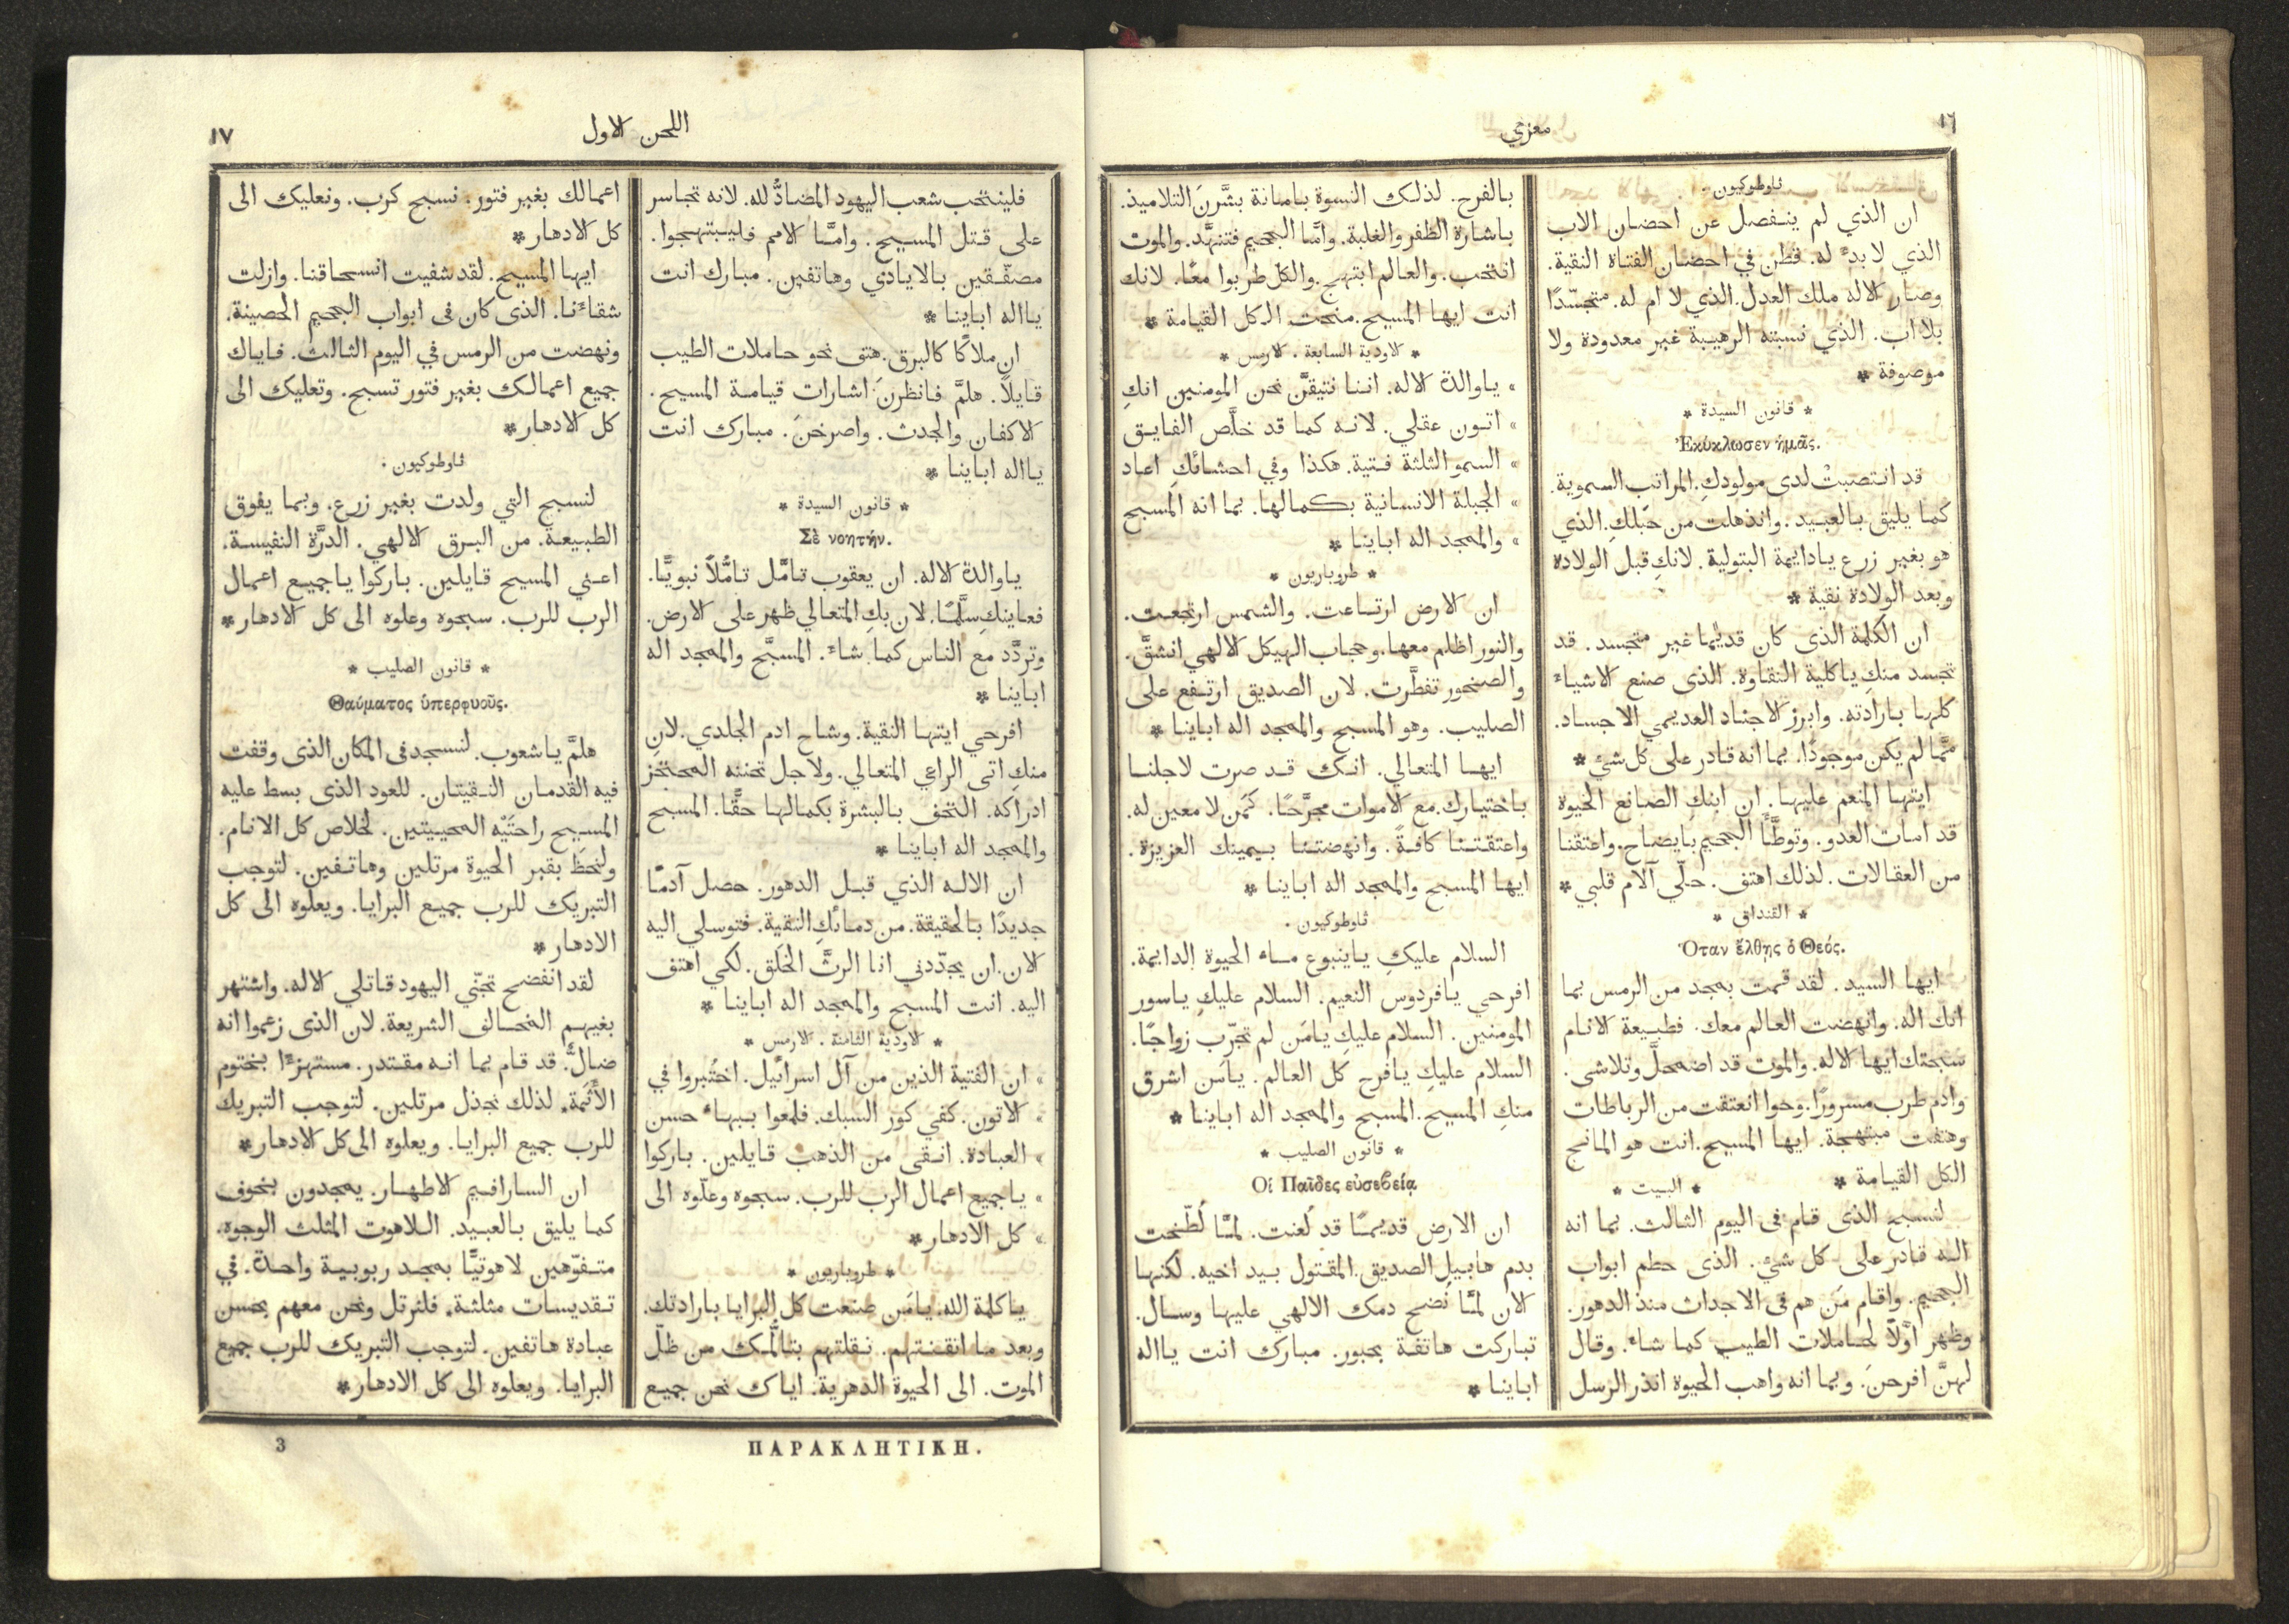 ١٦
معزي
ثاوطوكيون۰
ان الذي لم ينفصل عن احضان الاب
الذي لا بدء له. قطن في احضان الفتاة النقية.
وصار الاله ملك العدل. الذي لا ام له. متجسّدًا
بلا اب. الذي نسبته الرهيبة غير معدودة ولا
موصوفة *
* قانون السيدة *
Ἐκύκλωσεν ἡμᾶς.
قد انتصبتْ لدى مولودكِ. المراتب السموية.
كما يليق بالعبيد. وانذهلت من حَبَلكِ. الذي
هو بغير زرع يادايمة البتولية. لانكِ قبل الولادة
وبعد الولادة نقية *
ان الكلمة الذى كان قديمًا غير متجسد. قد
تجسد منكِ ياكلية النقاوة. الذى صنع الاشياء
كلها بارادته. وابرز الاجناد العديمي الاجساد.
ممَّا لم يكن موجودًا. بما انه قادر على كل شيء *
ايتها المنعم عليها. ان ابنكِ الصانع الحيوة
قد امات العدو. وتوطَّأ الجحيم بايضاح. واعتقنا
من العقالات. لذلك اهتف. حلّي آلام قلبي *
* القنداق *
Ὅταν ἔλθῃς ὁ Θεός.
ايها السيد. لقد قمت بمجد من الرمس بما
انك اله. وانهضت العالم معك. فطبيعة الانام
سبحتك ايها الاله. والموت قد اضمحلَّ وتلاشى.
وادم طرب مسرورًا. وحوا انعتقت من الرباطات
وهتفت مبتهجة. ايها المسيح. انت هو المانح
الكل القيامة *
* البيت *
لنسبح الذى قام فى اليوم الثالث. بما انه
اله قادر على كل شيء. الذى حطم ابواب
الجحيم. واقام مَن هم فى الاجداث منذ الدهور.
وظهر أوَّلاً لحاملات الطيب كما شاء. وقال
لهنَّ افرحنَ. وبما انه واهب الحيوة انذر الرسل
بالفرح. لذلك النسوة بامانة بشَّرنَ التلاميذ.
باشارة الظفر والغلبة. وامَّا الجحيم فتنهَّد. والموت
انتحب. والعالم ابتهج. والكلّ طربوا معًا. لانك
انت ايها المسيح. منحت الكل القيامة *
* الاودية السابعة. الارمس *
» ياوالدة الاله. اننا نتيقَّن نحن المومنين انكِ
» اتون عقلي. لانه كما قد خلَّص الفايق
» السمو الثلثة فتية. هكذا وفي احشائكِ اعاد
» الجبلة الانسانية بكمالها. بما انه المسبح
» والممجد اله اباينا *
* طروباريون *
ان الارض ارتاعت. والشمس ارتجعت.
والنور اظلم معها. وحجاب الهيكل الالهي انشقَّ.
والصخور تفطَّرت. لان الصديق ارتفع على
الصليب. وهو المسبح والممجد اله اباينا *
ايها المتعالي. انك قد صرت لاجلنا
باختيارك. مع الاموات مجرَّحًا. كمَن لا معين له.
واعتقتنا كافةً. وانهضتنا بيمينك العزيزة.
ايها المسبح والممجد اله اباينا *
ثاوطوكيون.
السلام عليكِ ياينبوع ماء الحيوة الدايمة.
افرحي يافردوس النعيم. السلام عليكِ ياسور
المومنين. السلام عليكِ يامَن لم تجرّب زواجًا.
السلام عليكِ يافرح كل العالم. يامَن اشرق
منكِ المسيح. المسبح والممجد اله اباينا *
* قانون الصليب *
Οἱ Παῖδες εὐσεβείᾳ
ان الارض قديمًا قد لُعنت. لمَّا لُطّخت
بدم هابيل الصديق. المقتول بيد اخيه. لكنها
الان لمَّا نُضح دمك الالهي عليها وسال.
تباركت هاتفة بحبور. مبارك انت يااله
اباينا *
اللحن الاول
١٧
فلينتحب شعب اليهود المضادُّ لله. لانه تجاسر
على قتل المسيح. وامَّا الامم فليبتهجوا.
مصفّقين بالايادي وهاتفين. مبارك انت
يااله اباينا *
ان ملاكًا كالبرق. هتف نحو حاملات الطيب
قايلاً. هلمَّ فانظرنَ اشارات قيامة المسيح.
الاكفان والجدث. واصرخنَ. مبارك انت
يااله اباينا *
* قانون السيدة *
Σὲ νοητήν.
ياوالدة الاله. ان يعقوب تامَّل تامُّلاً نبويًّا.
فعاينكِ سلَّمًا. لان بكِ المتعالي ظهر على الارض.
وتردَّد مع الناس كما شاء. المسبَّح والممجد اله
اباينا *
افرحي ايتها النقية. وشاح ادم الجلدي. لان
منكِ اتى الراعي المتعالي. ولاجل تحننه المحتجز
ادراكه. التحف بالبشرة بكمالها حقًّا. المسبح
والممجد اله اباينا *
ان الاله الذي قبل الدهور. حصل آدمًا
جديدًا بالحقيقة. من دمائكِ النقية. فتوسلي اليه
الان. ان يجدّدني انا الرثَّ الخَلَق. لكي اهتف
اليه. انت المسبح والممجد اله اباينا *
* الاودية الثامنة. الارمس *
» ان الفتية الذين من آل اسرائيل. اختُبروا في
» الاتون. كفي كور السبك. فلمعوا ببهاء حسن
» العبادة. انقى من الذهب قايلين. باركوا
» ياجميع اعمال الرب للرب. سبحوه وعلّوه الى
» كل الادهار *
* طروباريون *
ياكلمة الله. يامَن صنعت كل البرايا بارادتك.
وبعد ما اتقنتهم. نقلتهم بتالُّمك من ظلّ
الموت. الى الحيوة الدهرية. اياك نحن جميع
اعمالك بغير فتور. نسبح كرب. ونعليك الى
كل الادهار *
ايها المسيح. لقد شفيت انسحاقنا. وازلت
شقاءنا. الذى كان فى ابواب الجحيم الحصينة.
ونهضت من الرمس في اليوم الثالث. فاياك
جميع اعمالك بغير فتور تسبح. وتعليك الى
كل الادهار *
ثاوطوكيون.
لنسبح التي ولدت بغير زرع. وبما يفوق
الطبيعة. من البرق الالهي. الدرَّة النفيسة.
اعني المسيح قايلين. باركوا ياجميع اعمال
الرب للرب. سبحوه وعلوه الى كل الادهار *
* قانون الصليب *
Θαύματος ὑπερφυοῦς.
هلمَّ ياشعوب. لنسجد فى المكان الذى وقفت
فيه القدمان النقيتان. للعود الذى بسط عليه
المسيح راحتَيْه المحييتين. لخلاص كل الانام.
ولنحظَ بقبر الحيوة مرتلين وهاتفين. لتوجب
التبريك للرب جميع البرايا. ويعلوه الى كل
الادهار *
لقد انفضح تجنّي اليهود قاتلي الاله. واشتهر
بغيهم المخالف الشريعة. لان الذى زعموا انه
ضالٌّ. قد قام بما انه مقتدر. مستهزءًا بختوم
الأثمة. لذلك نجذل مرتلين. لتوجب التبريك
للرب جميع البرايا. ويعلوه الى كل الادهار *
ان السارافيم الاطهار. يمجدون بخوف
كما يليق بالعبيد. اللاهوت المثلث الوجوه.
متفوّهين لاهوتيًّا بمجد ربوبية واحدة. في
تقديسات مثلثة. فلنرتل ونحن معهم بحسن
عبادة هاتفين. لتوجب التبريك للرب جميع
البرايا. ويعلوه الى كل الادهار *
ΠΑΡΑΚΛΗΤΙΚΗ.
3